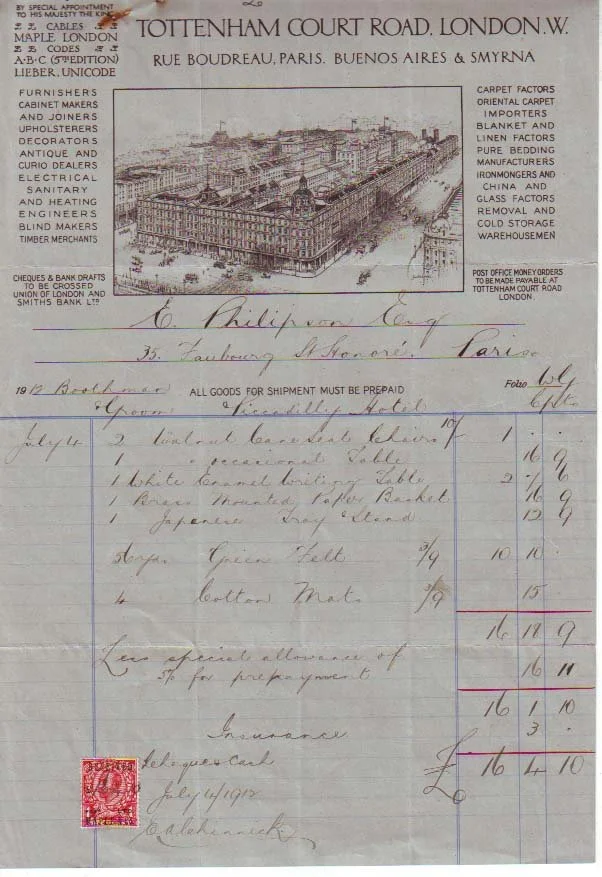 BY SPECIAL APPOINTMENT
TO HIS MAJESTY THE KING
CABLES
MAPLE LONDON
CODES
A·B·C (5TH EDITION)
LIEBER, UNICODE
TOTTENHAM COURT ROAD, LONDON.W.
RUE BOUDREAU, PARIS. BUENOS AIRES & SMYRNA
FURNISHERS
CABINET MAKERS
AND JOINERS
UPHOLSTERERS
DECORATORS
ANTIQUE AND
CURIO DEALERS
ELECTRICAL
SANITARY
AND HEATING
ENGINEERS
BLIND MAKERS
TIMBER MERCHANTS
CARPET FACTORS
ORIENTAL CARPET
IMPORTERS
BLANKET AND
LINEN FACTORS
PURE BEDDING
MANUFACTURERS
IRONMONGERS AND
CHINA AND
GLASS FACTORS
REMOVAL AND
COLD STORAGE
WAREHOUSEMEN
CHEQUES & BANK DRAFTS
TO BE CROSSED
UNION OF LONDON AND
SMITHS BANK LTD
POST OFFICE MONEY ORDERS
TO BE MADE PAYABLE AT
TOTTENHAM COURT ROAD
LONDON.
E. Philipson Esq
35. Faubourg St Honoré. Paris
1912 Boothman ALL GOODS FOR SHIPMENT MUST BE PREPAID Folio
Groom Piccadilly Hotel
July 4 2 Walnut Cane Seat Chairs 10/ 1 . .
1 " occasional Table 16 9
1 White Enamel Writing Table 2 - 6
1 Brass Mounted Paper Basket 16 9
1 Japanese Tray & Stand 12 9
56 yds Green Felt 3/9 10 10 .
4 Cotton Mats 3/9 15 .
16 18 9
Less special allowance of
5% for prepayment 16 11
16 1 10
Insurance 3 .
£ 16 4 10
Cheques Cash
July 4/1912